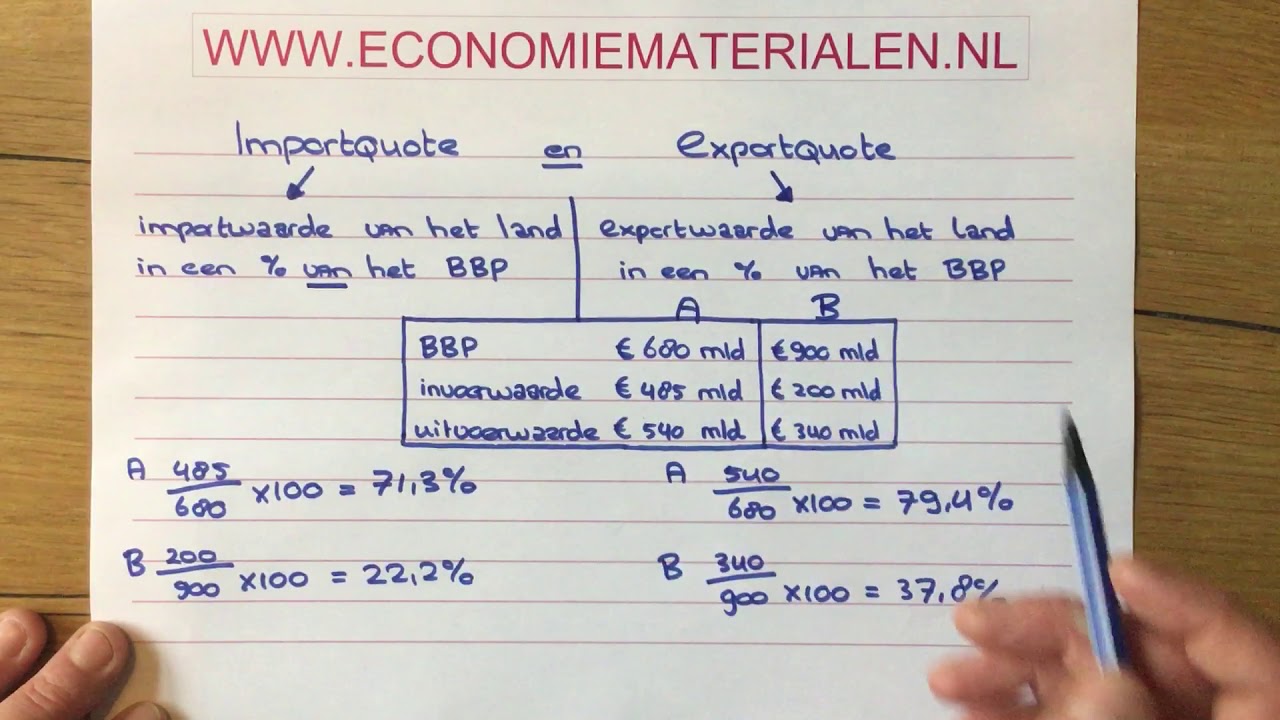 WWW.ECONOMIEMATERIALEN.NL
ImportQuote en ExportQuote
importwaarde van het land
in een % van het BBP
exportwaarde van het land
in een % van het BBP
A B
BBP € 680 mld € 900 mld
invoerwaarde € 485 mld € 200 mld
uitvoerwaarde € 540 mld € 340 mld
A 485/680 x100 = 71,3%
B 200/900 x100 = 22,2%
A 540/680 x100 = 79,4%
B 340/900 x100 = 37,8%